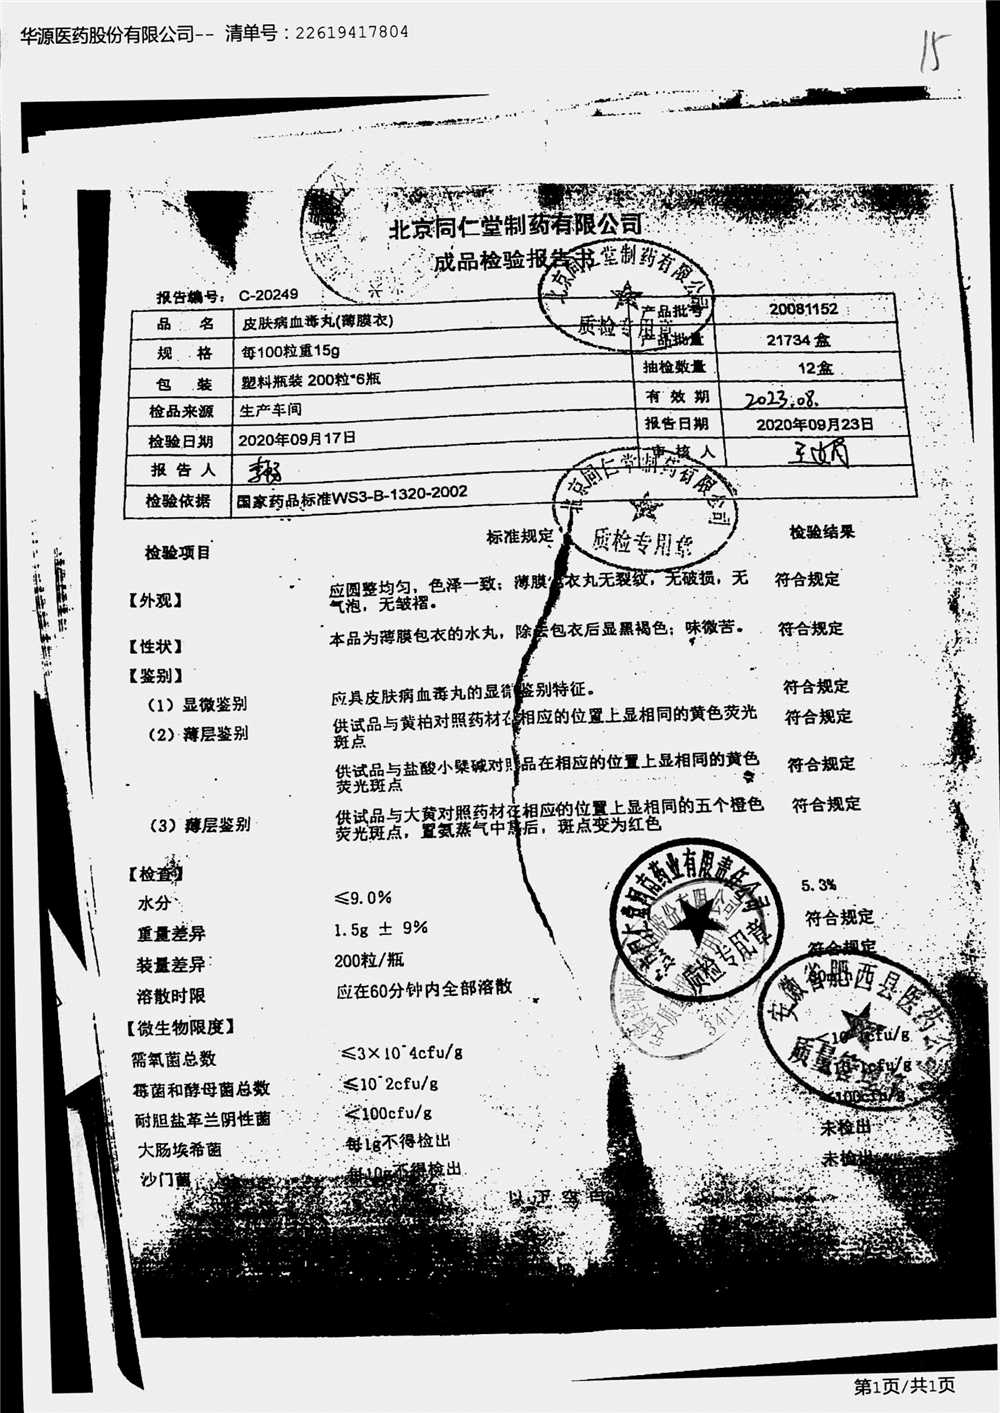 华源医药股份有限公司-- 清单号：22619417804
15
北京同仁堂制药有限公司
成品检验报告书
报告编号： C-20249
品 名 皮肤病血毒丸(薄膜衣) 产品批号 20081152
规 格 每100粒重15g 产品批量 21734 盒
包 装 塑料瓶装 200粒*6瓶 抽检数量 12盒
检品来源 生产车间 有 效 期 2023.08.
检验日期 2020年09月17日 报告日期 2020年09月23日
报 告 人 审 核 人
检验依据 国家药品标准WS3-B-1320-2002
北京同仁堂制药有限公司
质检专用章
北京同仁堂制药有限公司
质检专用章
检验项目 标准规定 检验结果
【外观】 应圆整均匀，色泽一致；薄膜包衣丸无裂纹，无破损，无 符合规定
气泡，无皱褶。
【性状】 本品为薄膜包衣的水丸，除去包衣后显黑褐色；味微苦。 符合规定
【鉴别】
（1）显微鉴别 应具皮肤病血毒丸的显微鉴别特征。 符合规定
（2）薄层鉴别 供试品与黄柏对照药材在相应的位置上显相同的黄色荧光 符合规定
斑点
供试品与盐酸小檗碱对照品在相应的位置上显相同的黄色 符合规定
荧光斑点
（3）薄层鉴别 供试品与大黄对照药材在相应的位置上显相同的五个橙色 符合规定
荧光斑点，置氨蒸气中熏后，斑点变为红色
【检查】
水分 ≤9.0% 5.3%
重量差异 1.5g ± 9% 符合规定
装量差异 200粒/瓶 符合规定
溶散时限 应在60分钟内全部溶散
【微生物限度】
需氧菌总数 ≤3×10ˆ4cfu/g
霉菌和酵母菌总数 ≤10ˆ2cfu/g
耐胆盐革兰阴性菌 <100cfu/g <100cfu/g
大肠埃希菌 每1g不得检出 未检出
沙门菌 每10g不得检出 未检出
以下空白
质检专用章
安徽省肥西县医药公司
第1页/共1页